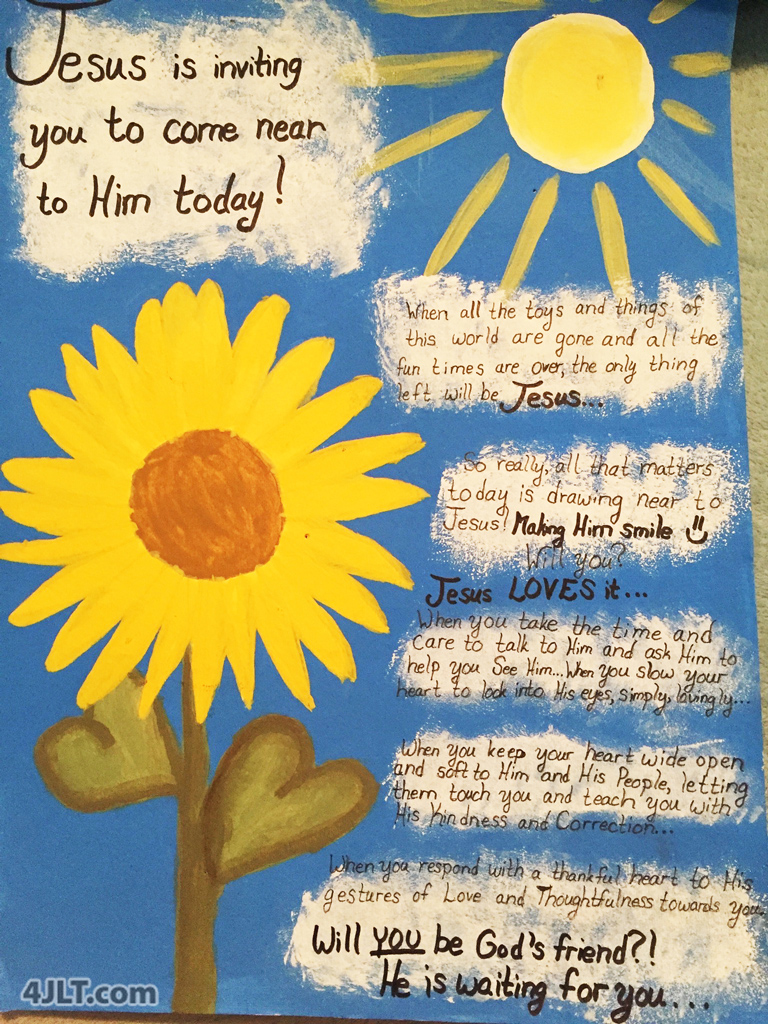 Jesus is inviting
you to come near
to Him today!
When all the toys and things of
this world are gone and all the
fun times are over, the only thing
left will be Jesus...
So really, all that matters
today is drawing near to
Jesus! Making Him smile
Will you?
Jesus LOVES it...
When you take the time and
care to talk to Him and ask Him to
help you See Him... When you slow your
heart to look into His eyes, simply, lovingly...
When you keep your heart wide open
and soft to Him and His People, letting
them touch you and teach you with
His Kindness and Correction...
When you respond with a thankful heart to His
gestures of Love and Thoughtfulness towards you.
Will you be God's friend?!
He is waiting for you...
4JLT.com